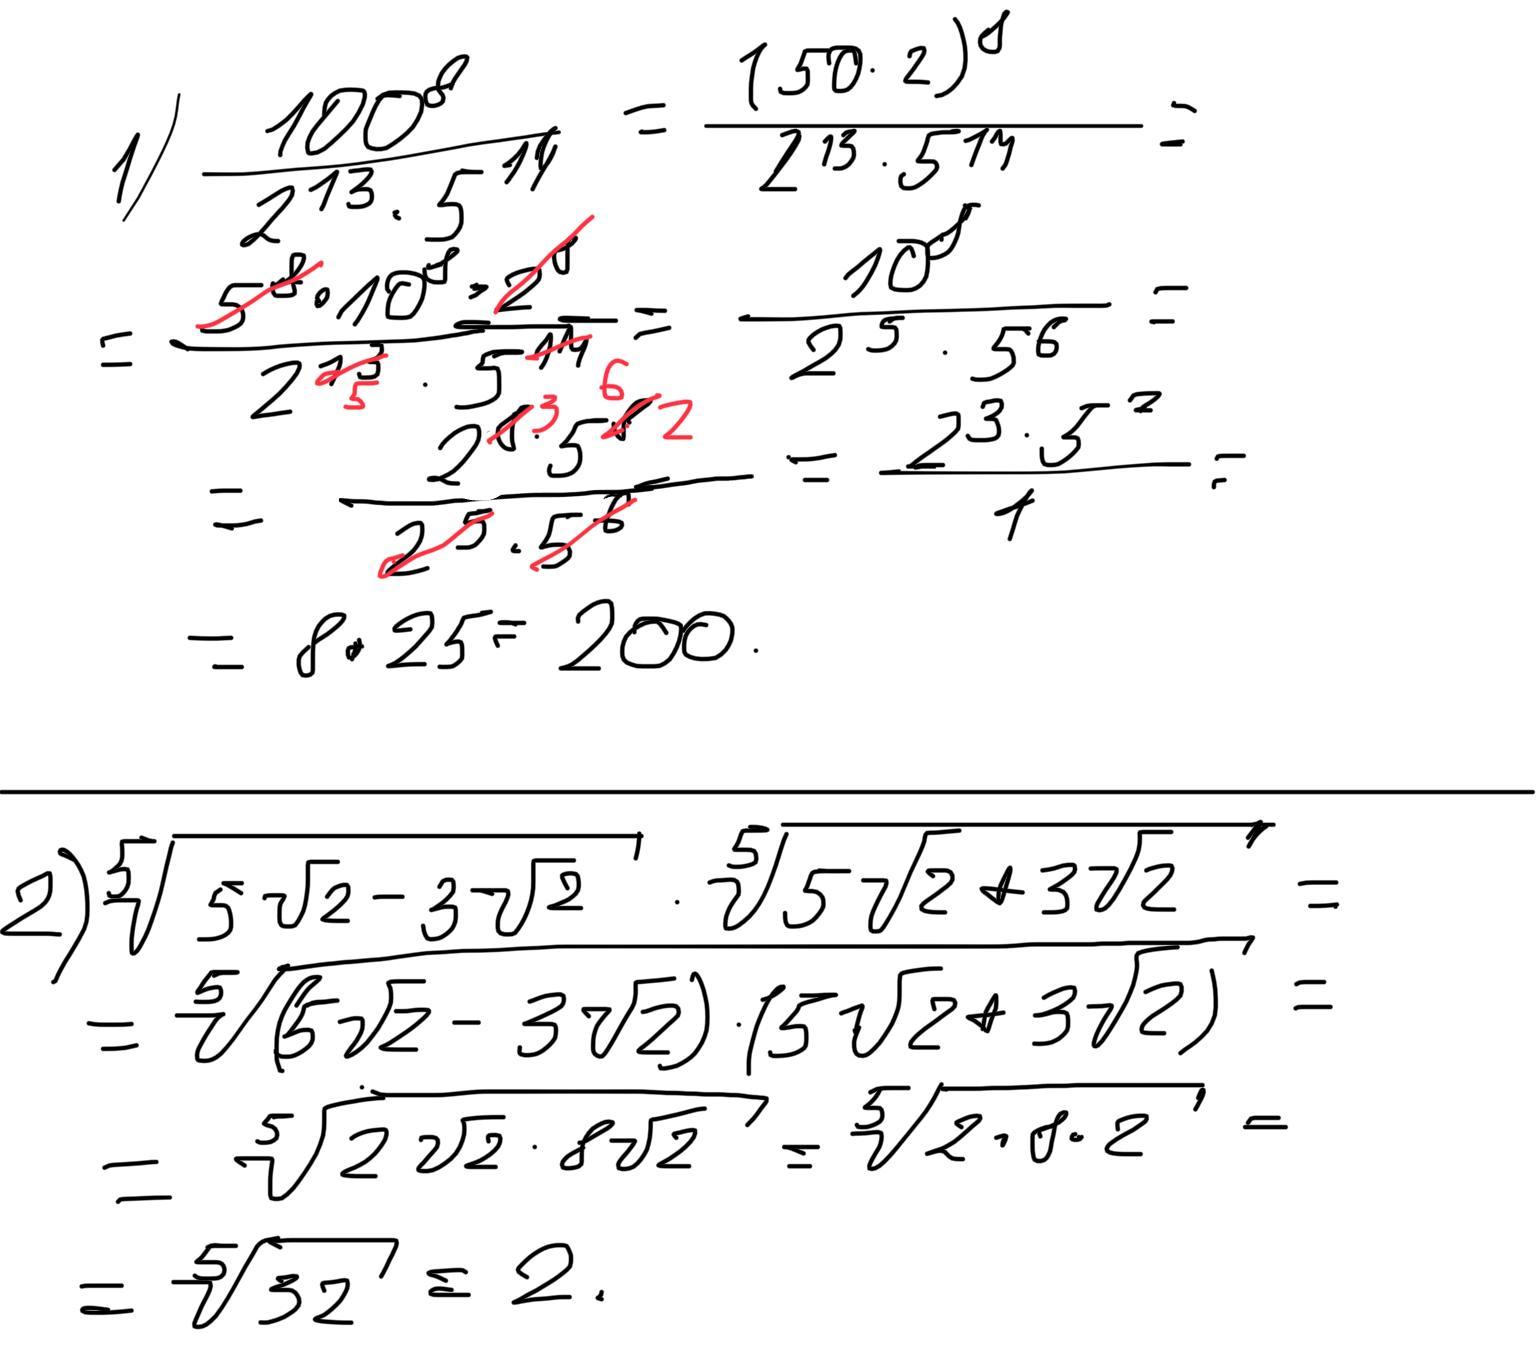 1) 100^8 / (2^13 · 5^14) = (50 · 2)^8 / (2^13 · 5^14) =
= (5^8 · 10^8 · 2^8) / (2^13 · 5^14) = 10^8 / (2^5 · 5^6) =
5 6
= (2^8 · 5^8) / (2^5 · 5^6) = (2^3 · 5^2) / 1 =
3 2
= 8 · 25 = 200.
2) ⁵√(5√2 − 3√2) · ⁵√(5√2 + 3√2) =
= ⁵√((5√2 − 3√2) · (5√2 + 3√2)) =
= ⁵√(2√2 · 8√2) = ⁵√(2 · 8 · 2) =
= ⁵√32 = 2.